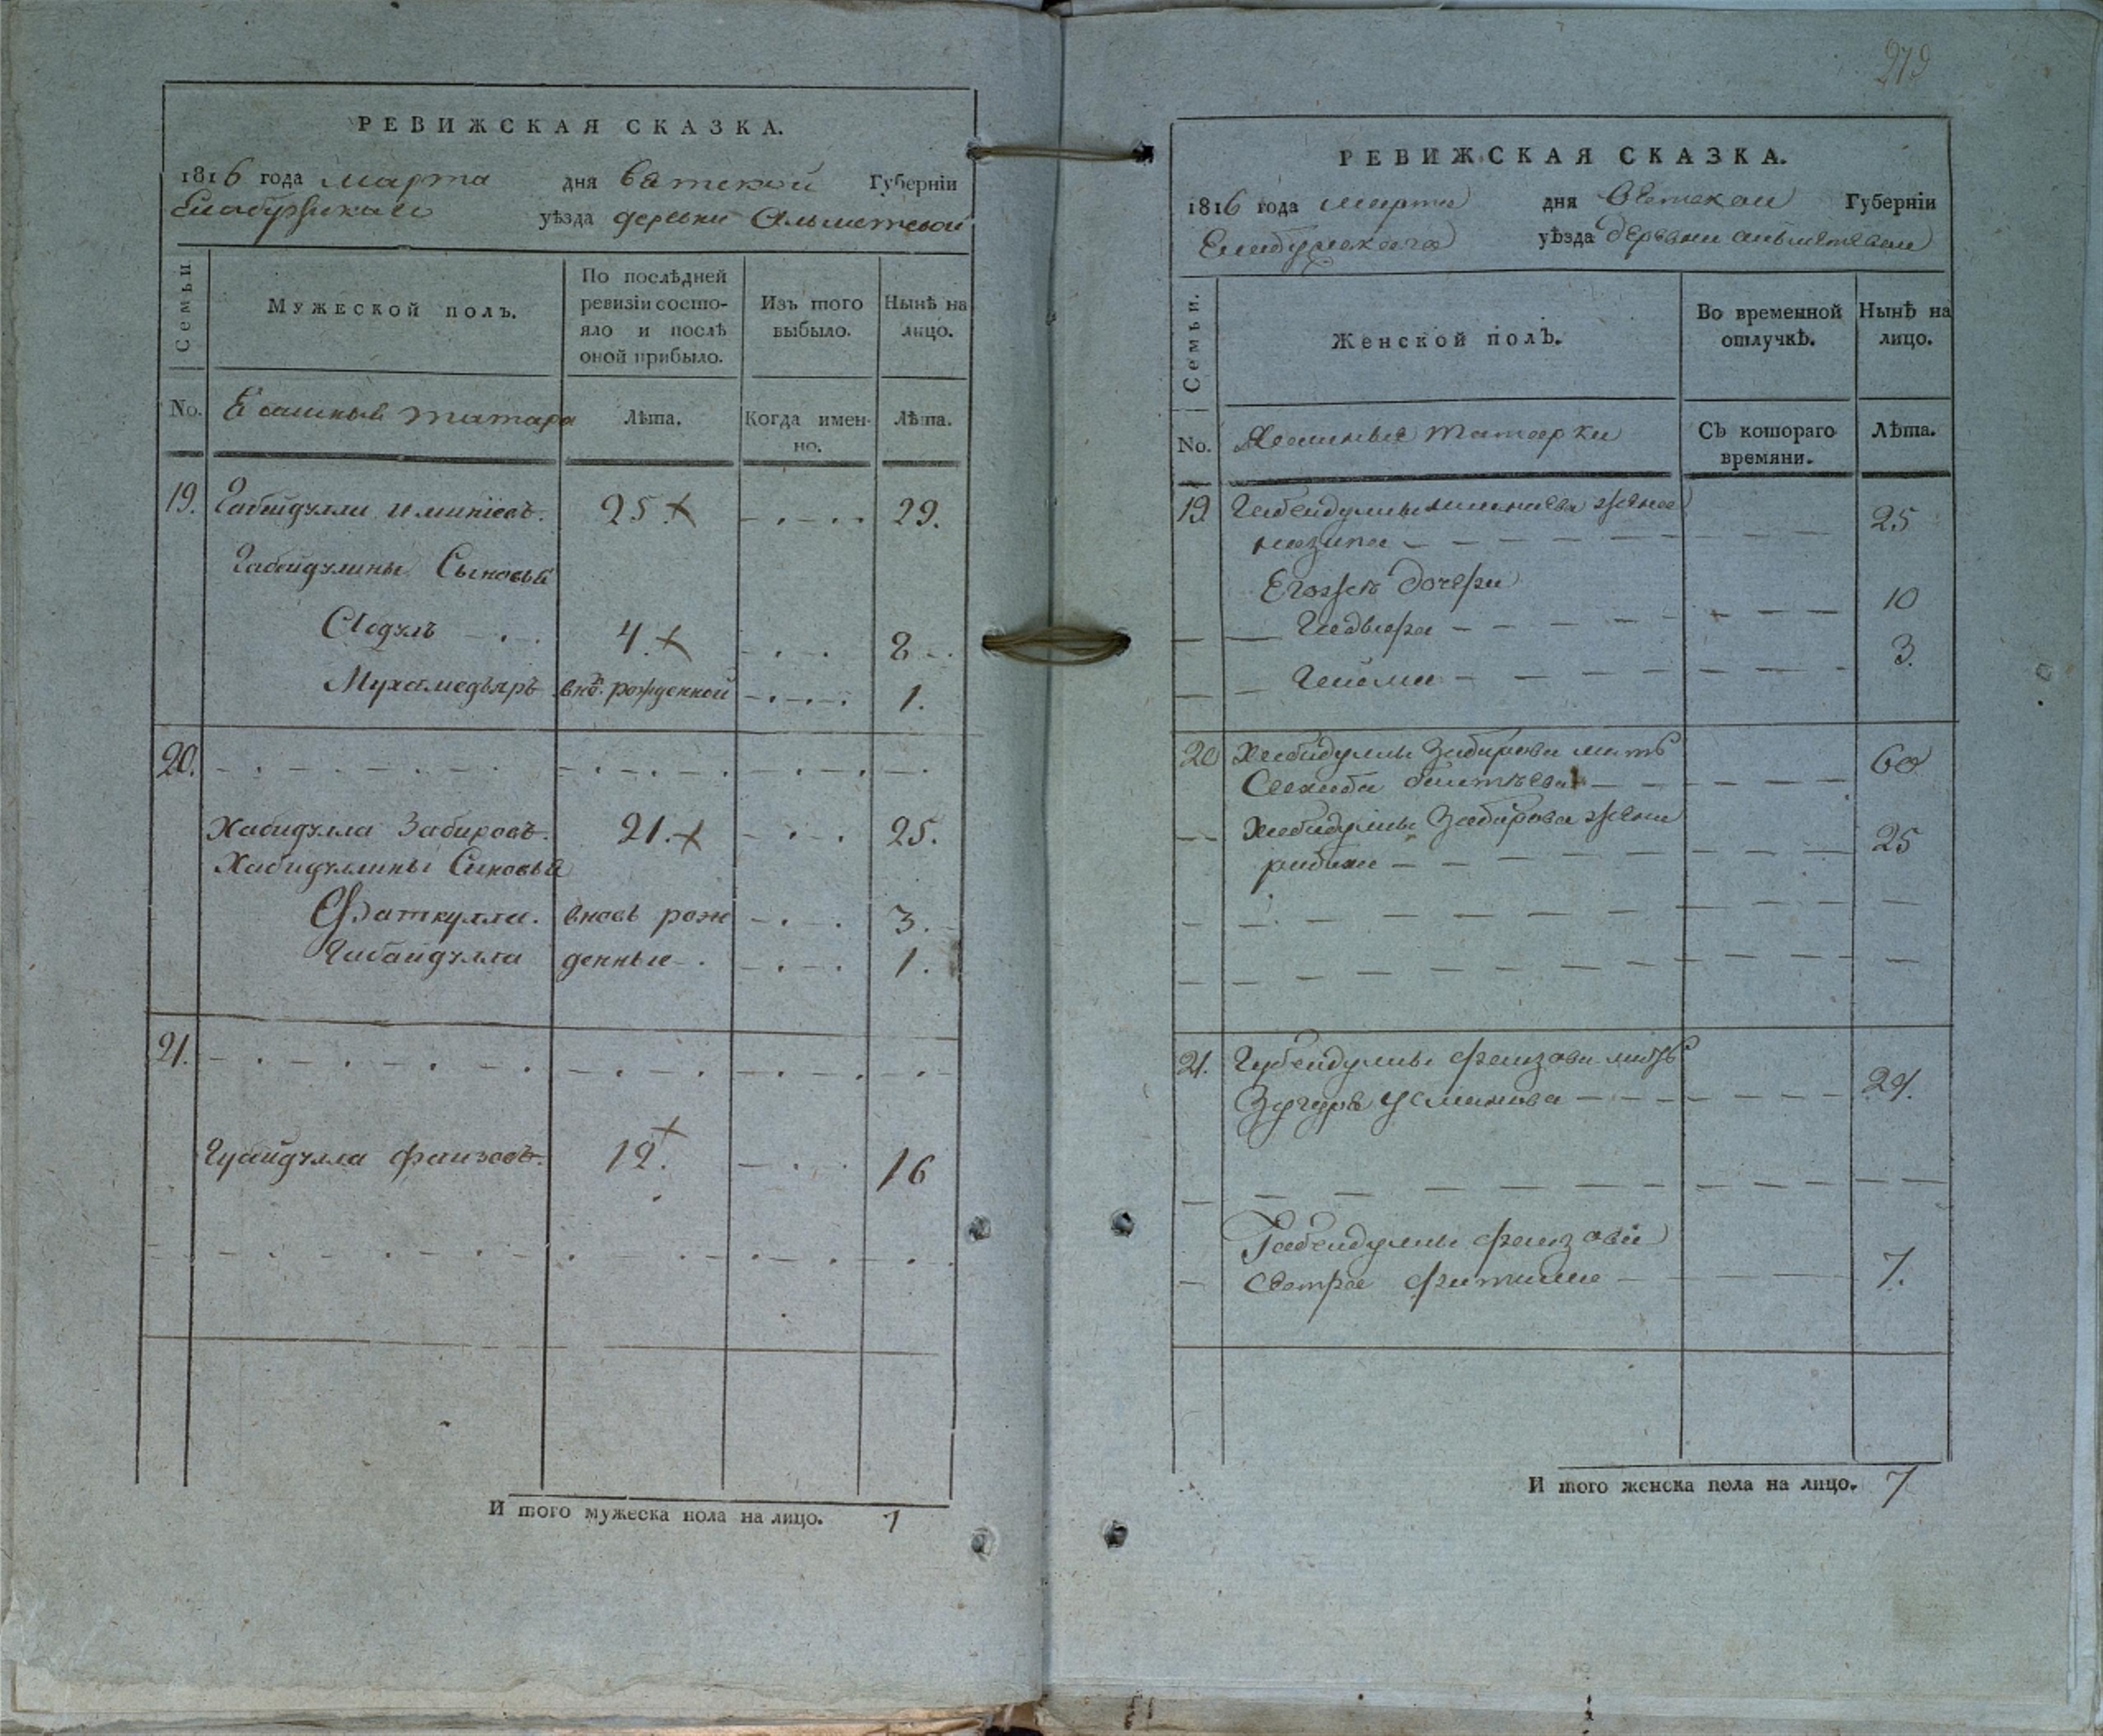 РЕВИЖСКАЯ СКАЗКА.
1816 года марта дня вятской Губерніи
Елабужскаго уѣзда деревни Альметевой
Семьи
Мужеской полъ.
По послѣдней ревизіи состояло и послѣ оной прибыло.
Изъ того выбыло.
Нынѣ на лицо.
No. Ясашныя татара
Лѣта.
Когда именно.
Лѣта.
19. Габейдулла иминіевъ. 25 29.
Габейдулины Сыновья
4. 8
Мухамедьяръ внѡ. рожденной 1.
20.
Хабидулла Забировъ. 21. 25.
Хабидуллины Сыновья
Фаткулла. вновь рож 3.
Габайдулла денные 1.
21.
Гуайдулла фаизовъ. 12. 16
И того мужеска пола на лицо. 7
279
РЕВИЖСКАЯ СКАЗКА.
1816 года марта дня Вятской Губерніи
Елабужскаго уѣзда деревни альметевой
Семьи.
Женской полъ.
Во временной отлучкѣ.
Нынѣ на лицо.
No. Ясашныя татарки
Съ котораго времяни.
Лѣта.
19. Габейдуллы иминиева жена 25
Егожъ дочери
10
3.
20 Хабидуллы Забирова мать 60
Хабидуллы Забирова жена
25
21. Губейдуллы фаизова мать
Усманова
Габейдуллы фаизова
сестра фатима 7.
И того женска пола на лицо. 7